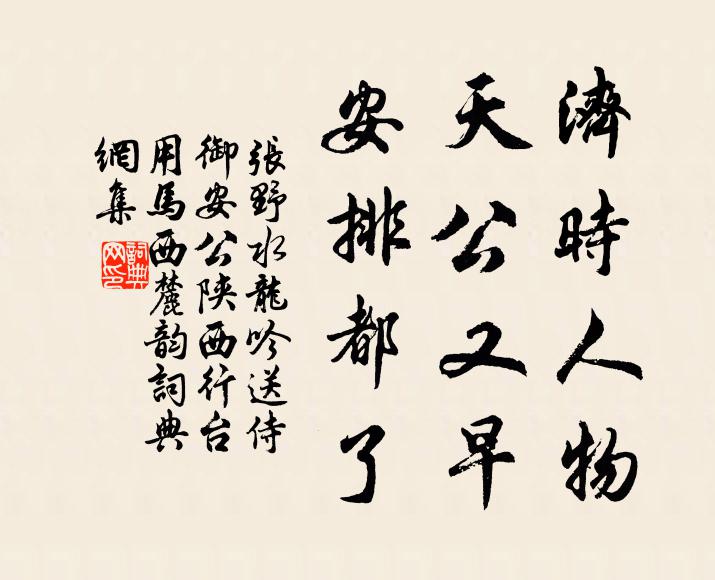 濟時人物
天公又早
安排都了
張野水龍吟送侍
御安公陕西行台
用馬西麓韵詞典
網集
詞典網印